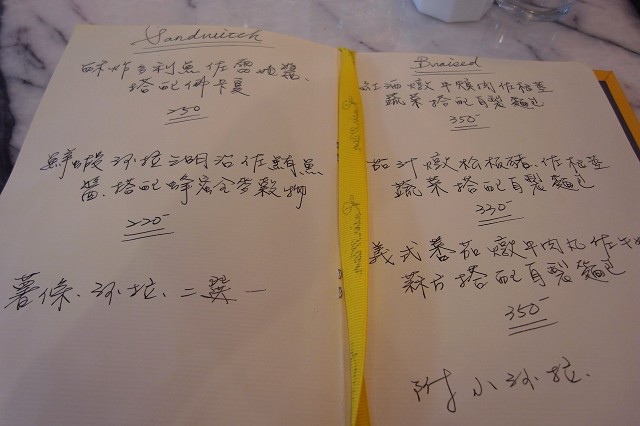 Sandwitch
酥炸多利魚佐雷姆醬、
搭配佛卡夏
250
鮮蝦沙拉三明治佐鮪魚
醬、搭配蜂蜜全麥穀物
220-
薯條、沙拉、二選一
Braised
紅酒燉牛頰肉佐根莖
蔬菜搭配自製麵包
350-
茄汁燉松板豬、佐根莖
蔬菜搭配自製麵包
330-
義式蕃茄燉牛肉丸佐
蘇方搭配自製麵包
350-
附小沙拉.